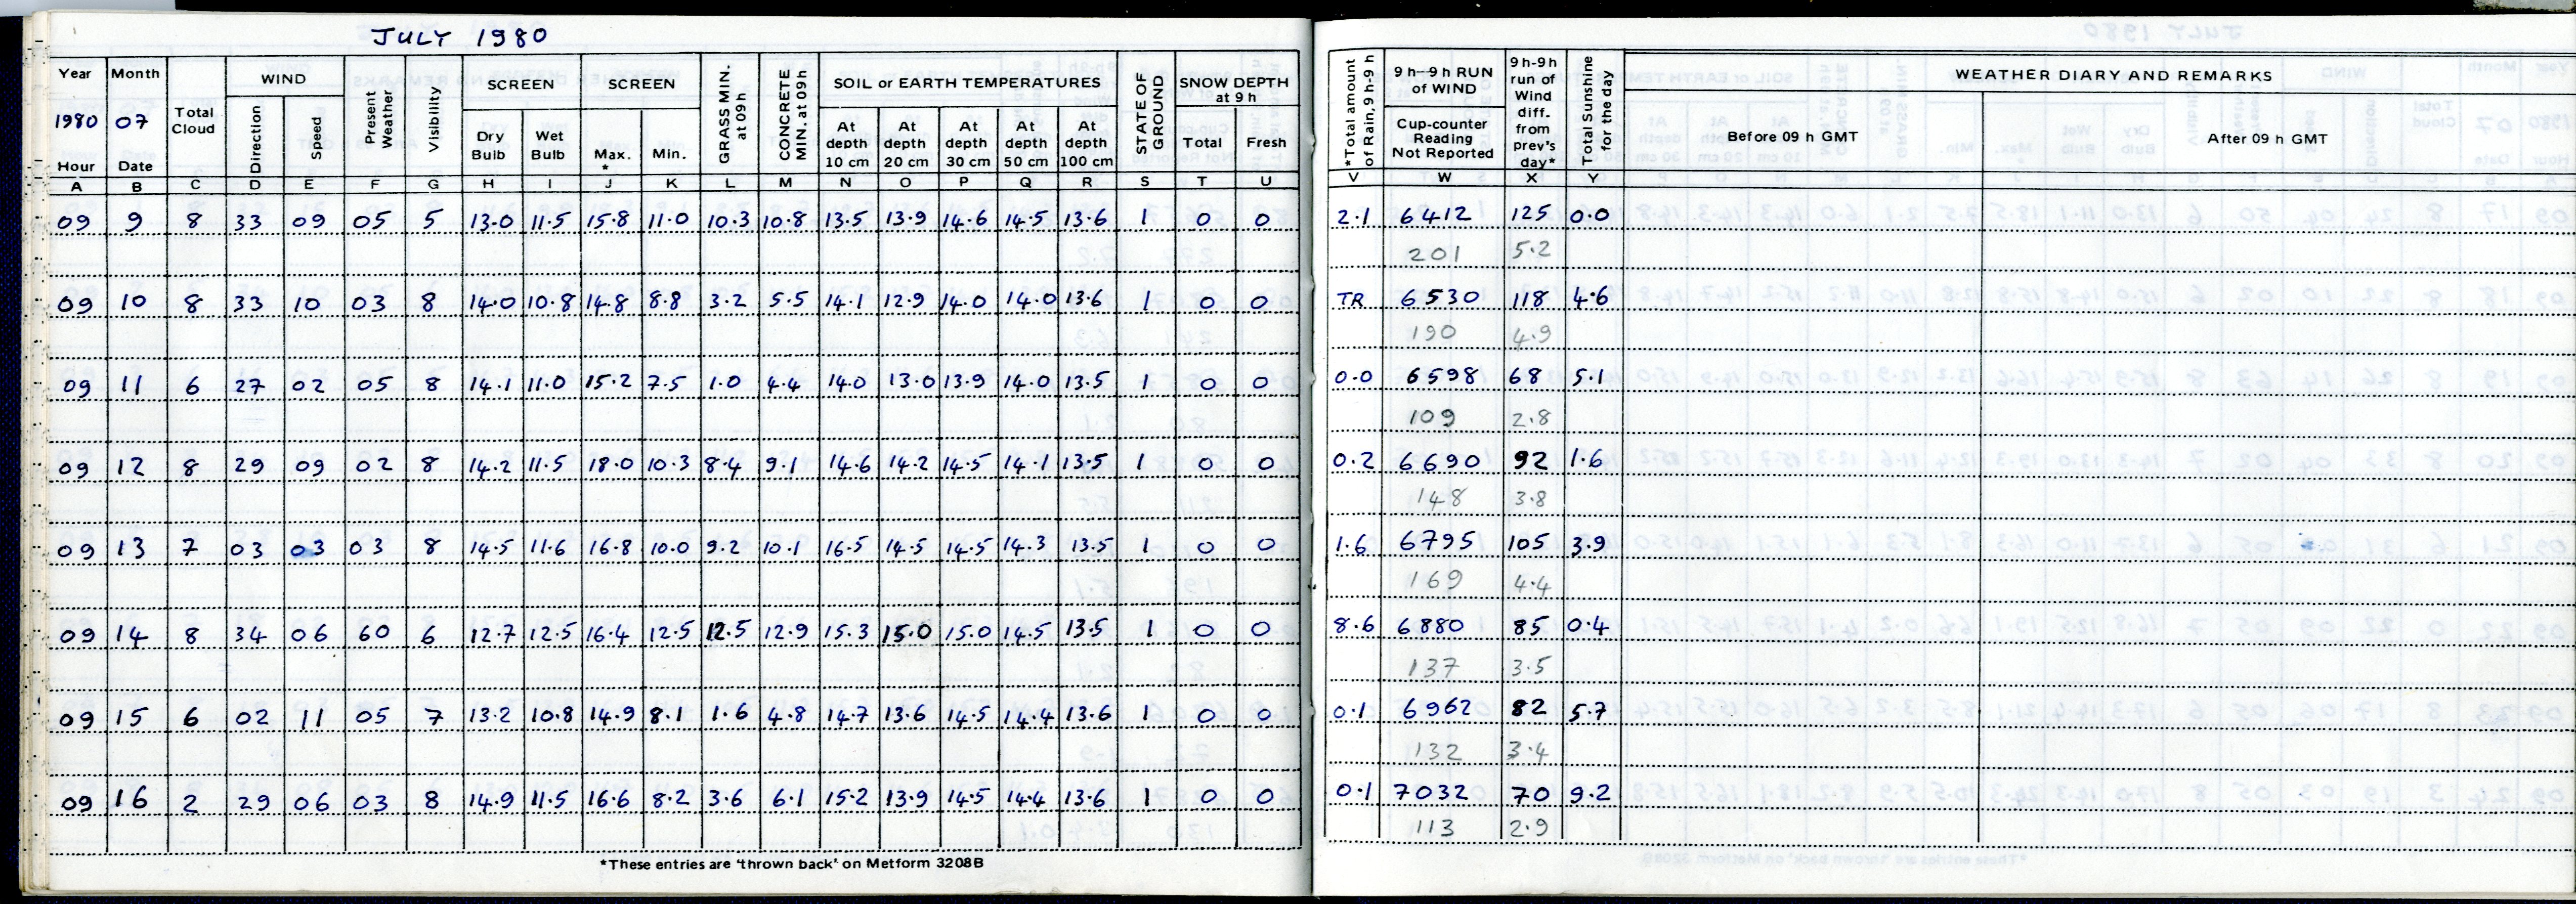 JULY 1980
Year Month WIND SCREEN SCREEN SOIL or EARTH TEMPERATURES SNOW DEPTH at 9 h
1980 07 Total Cloud Direction Speed Present Weather Visibility Dry Bulb Wet Bulb Max. * Min. GRASS MIN. at 09 h CONCRETE MIN. at 09 h At depth 10 cm At depth 20 cm At depth 30 cm At depth 50 cm At depth 100 cm STATE OF GROUND Total Fresh
Hour Date
*Total amount of Rain, 9 h-9 h 9 h–9 h RUN of WIND Cup-counter Reading Not Reported 9 h-9h run of Wind diff. from prev's day* Total Sunshine for the day WEATHER DIARY AND REMARKS
Before 09 h GMT After 09 h GMT
A B C D E F G H I J K L M N O P Q R S T U V W X Y
09 9 8 33 09 05 5 13.0 11.5 15.8 11.0 10.3 10.8 13.5 13.9 14.6 14.5 13.6 1 0 0 2.1 6412 125 0.0
201 5.2
09 10 8 33 10 03 8 14.0 10.8 14.8 8.8 3.2 5.5 14.1 12.9 14.0 14.0 13.6 1 0 0 TR 6530 118 4.6
190 4.9
09 11 6 27 02 05 8 14.1 11.0 15.2 7.5 1.0 4.4 14.0 13.0 13.9 14.0 13.5 1 0 0 0.0 6598 68 5.1
109 2.8
09 12 8 29 09 02 8 14.2 11.5 18.0 10.3 8.4 9.1 14.6 14.2 14.5 14.1 13.5 1 0 0 0.2 6690 92 1.6
148 3.8
09 13 7 03 03 03 8 14.5 11.6 16.8 10.0 9.2 10.1 16.5 14.5 14.5 14.3 13.5 1 0 0 1.6 6795 105 3.9
169 4.4
09 14 8 34 06 60 6 12.7 12.5 16.4 12.5 12.5 12.9 15.3 15.0 15.0 14.5 13.5 1 0 0 8.6 6880 85 0.4
137 3.5
09 15 6 02 11 05 7 13.2 10.8 14.9 8.1 1.6 4.8 14.7 13.6 14.5 14.4 13.6 1 0 0 0.1 6962 82 5.7
132 3.4
09 16 2 29 06 03 8 14.9 11.5 16.6 8.2 3.6 6.1 15.2 13.9 14.5 14.4 13.6 1 0 0 0.1 7032 70 9.2
113 2.9
*These entries are 'thrown back' on Metform 3208B